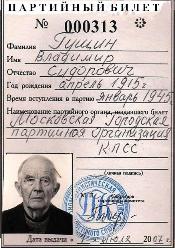 ПАРТИЙНЫЙ БИЛЕТ
№ 000313
Фамилия Гушин
Имя Владимир
Отчество Сидорович
Год рождения апрель 1915г.
Время вступления в партию январь 1945
Наименование партийного органа, выдавшего билет
Московская Городская
партийная организация
КПСС
(личная подпись)
Дата выдачи 2007 г.